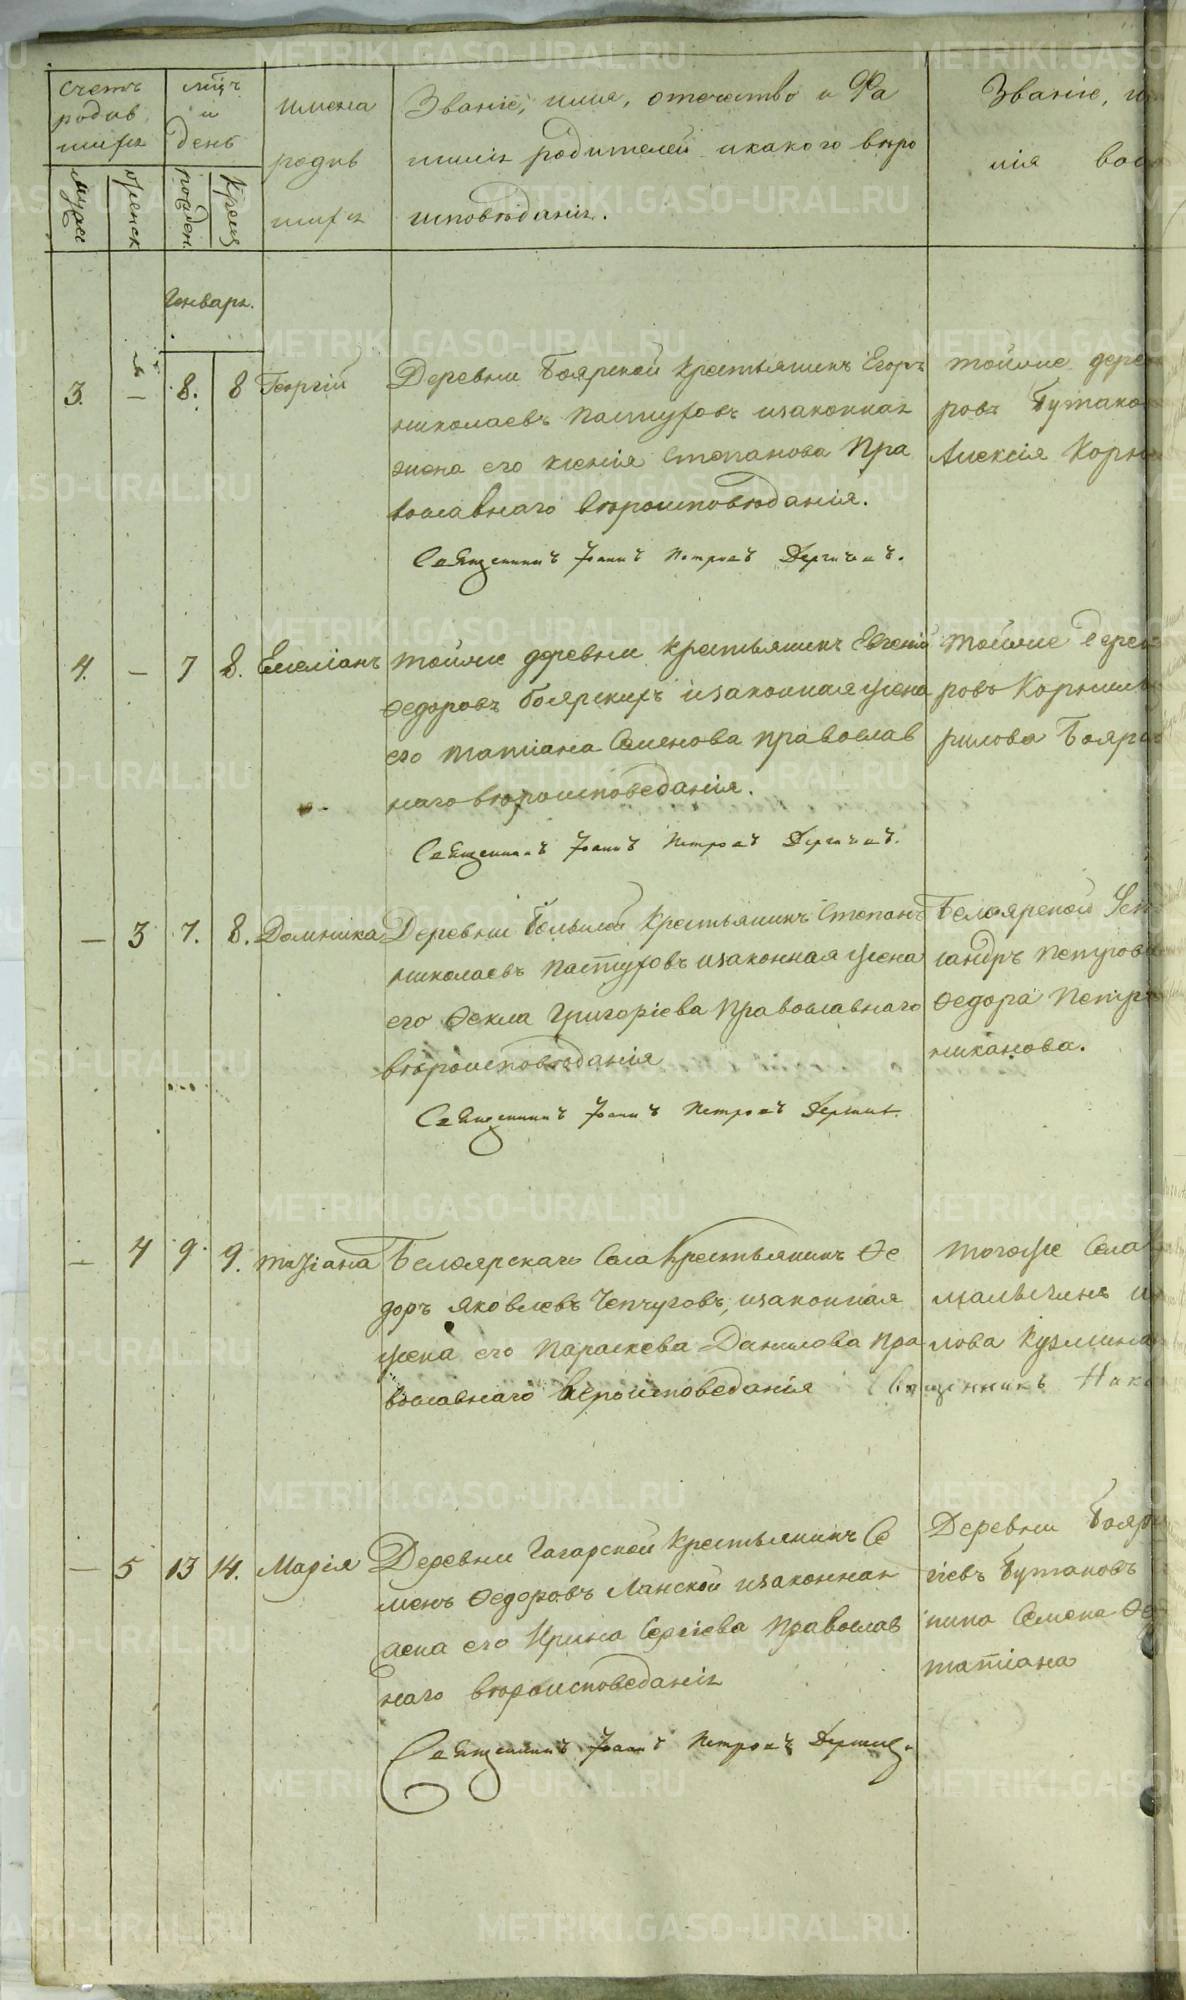 Счетъ родив шихъ
мѣцъ и день
имена родив шихъ
Званіе, имя, отечество и Фа
миліи родителей икакого вѣро
исповѣданія.
Званіе,
мужес
женск
рожден.
Креще
Генварь.
3. — 8. 8 Георгій
Деревни Боярской Крестьянинъ Егоръ
николаевъ Пастуховъ изаконная
жена его Ксенія Степанова Пра
вославнаго вѣроисповѣданія.
Священникъ Іоаннъ Петровъ
тойже дере
ровъ Бутако
Алексія Корни
4. — 7 8. Емеліанъ
тойже деревни крестьянинъ Евгеній
Ѳедоровъ Боярскихъ изаконная жена
его татіана Семенова православ
наго вѣроисповеданія.
Священникъ Іоаннъ Петровъ
тойже дере
ровъ Корнил
рилова Бояр
— 3 7. 8. Домника
Деревни Крестьянинъ Степанъ
николаевъ Пастуховъ изаконная жена
его Ѳекла Григоріева Православнаго
вѣроисповѣданія
Священникъ Іоаннъ Петровъ
Белоярской
сандръ Петров
Ѳедора Петр
никанова.
— 4 9. 9. татіана
Белоярскаго Села Крестьянинъ Ѳе
доръ Яковлевъ Чепчуговъ, изаконная
жена его Параскева Данилова Пра
вославнаго Вероисповеданія
Священникъ Нико
тогоже Села
лова Кузмина
— 5 13 14. Марія
Деревни Гагарской Крестьянинъ Се
менъ Ѳедоровъ Ланской изаконная
жена его Ирина Сергіева Православ
наго вѣроисповеданія
Священникъ Іоаннъ Петровъ
Деревни Бояр
гіевъ Бутаковъ
нина Семена Ѳе
татіана
METRIKI.GASO-URAL.RU